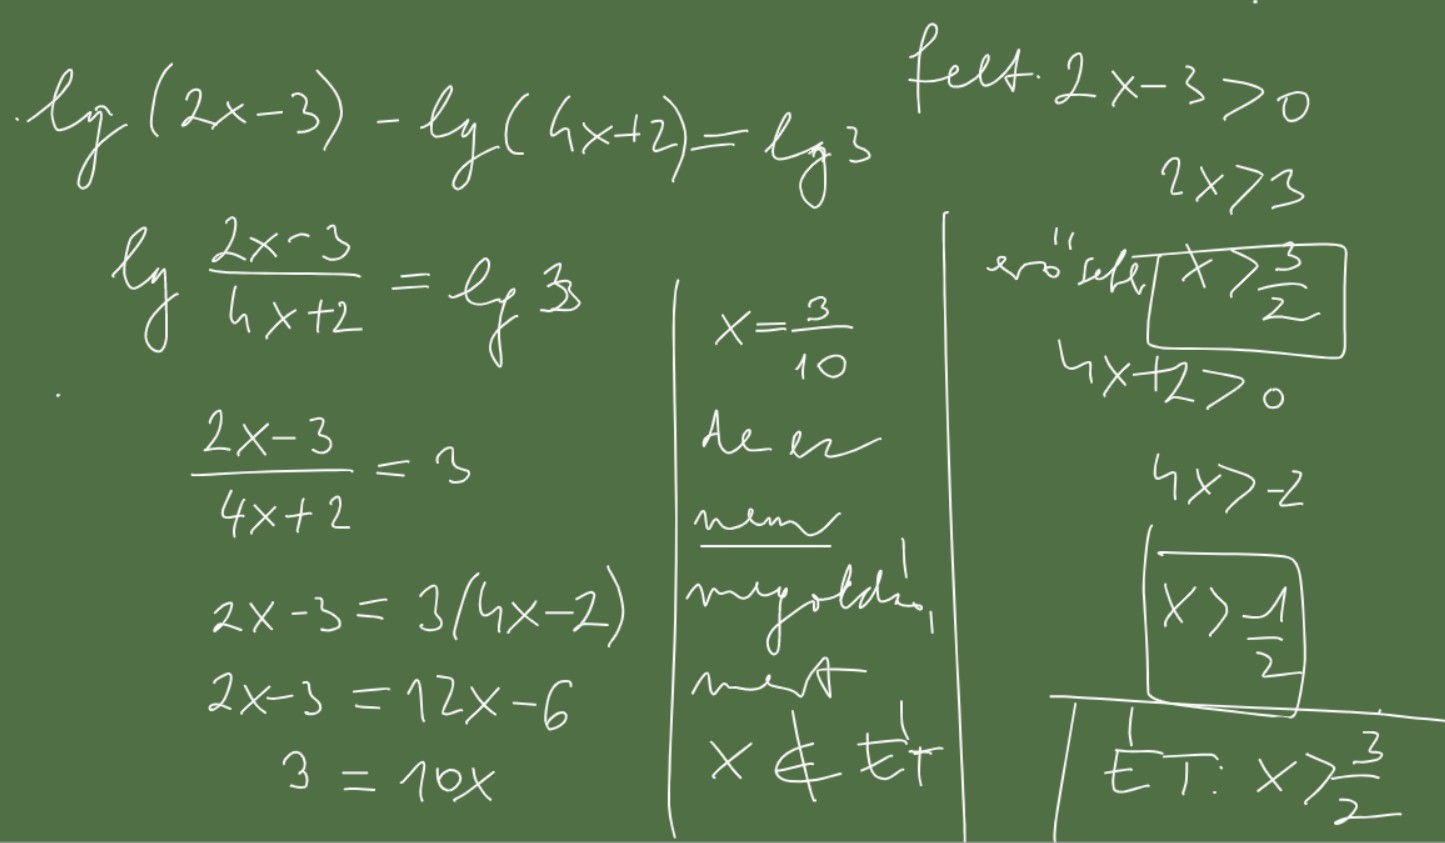 lg (2x-3) - lg (4x+2) = lg 3
lg \frac{2x-3}{4x+2} = lg 3
\frac{2x-3}{4x+2} = 3
2x-3 = 3(4x-2)
2x-3 = 12x-6
3 = 10x
x = \frac{3}{10}
de ez
nem
megoldás,
mert
x ∉ ÉT
felt. 2x-3>0
2x>3
x > \frac{3}{2}
4x+2>0
4x>-2
x > \frac{-1}{2}
ÉT: x > \frac{3}{2}